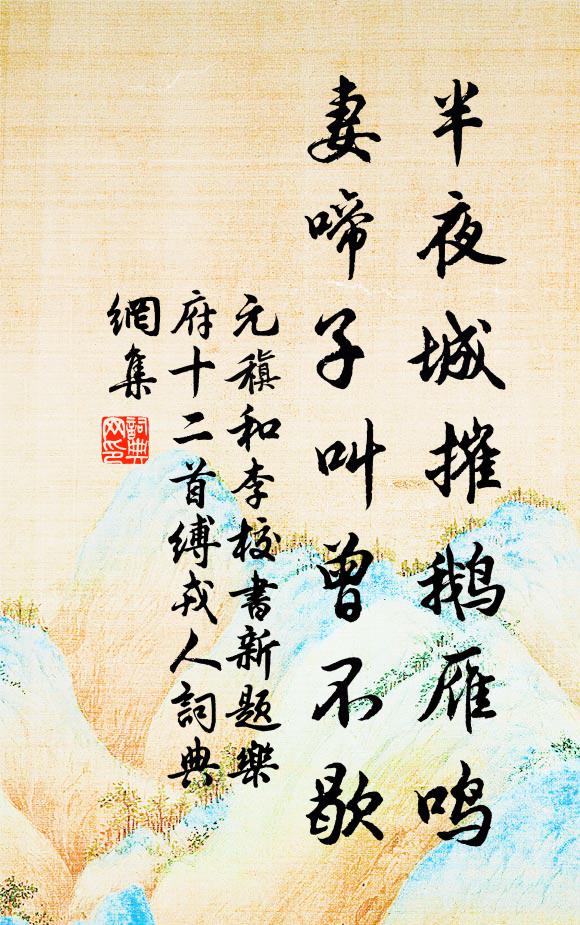 半夜城摧鹅雁鸣
妻啼子叫曾不歇
元稹和李校書新題樂
府十二首缚戎人詞典
網集
詞典
网印